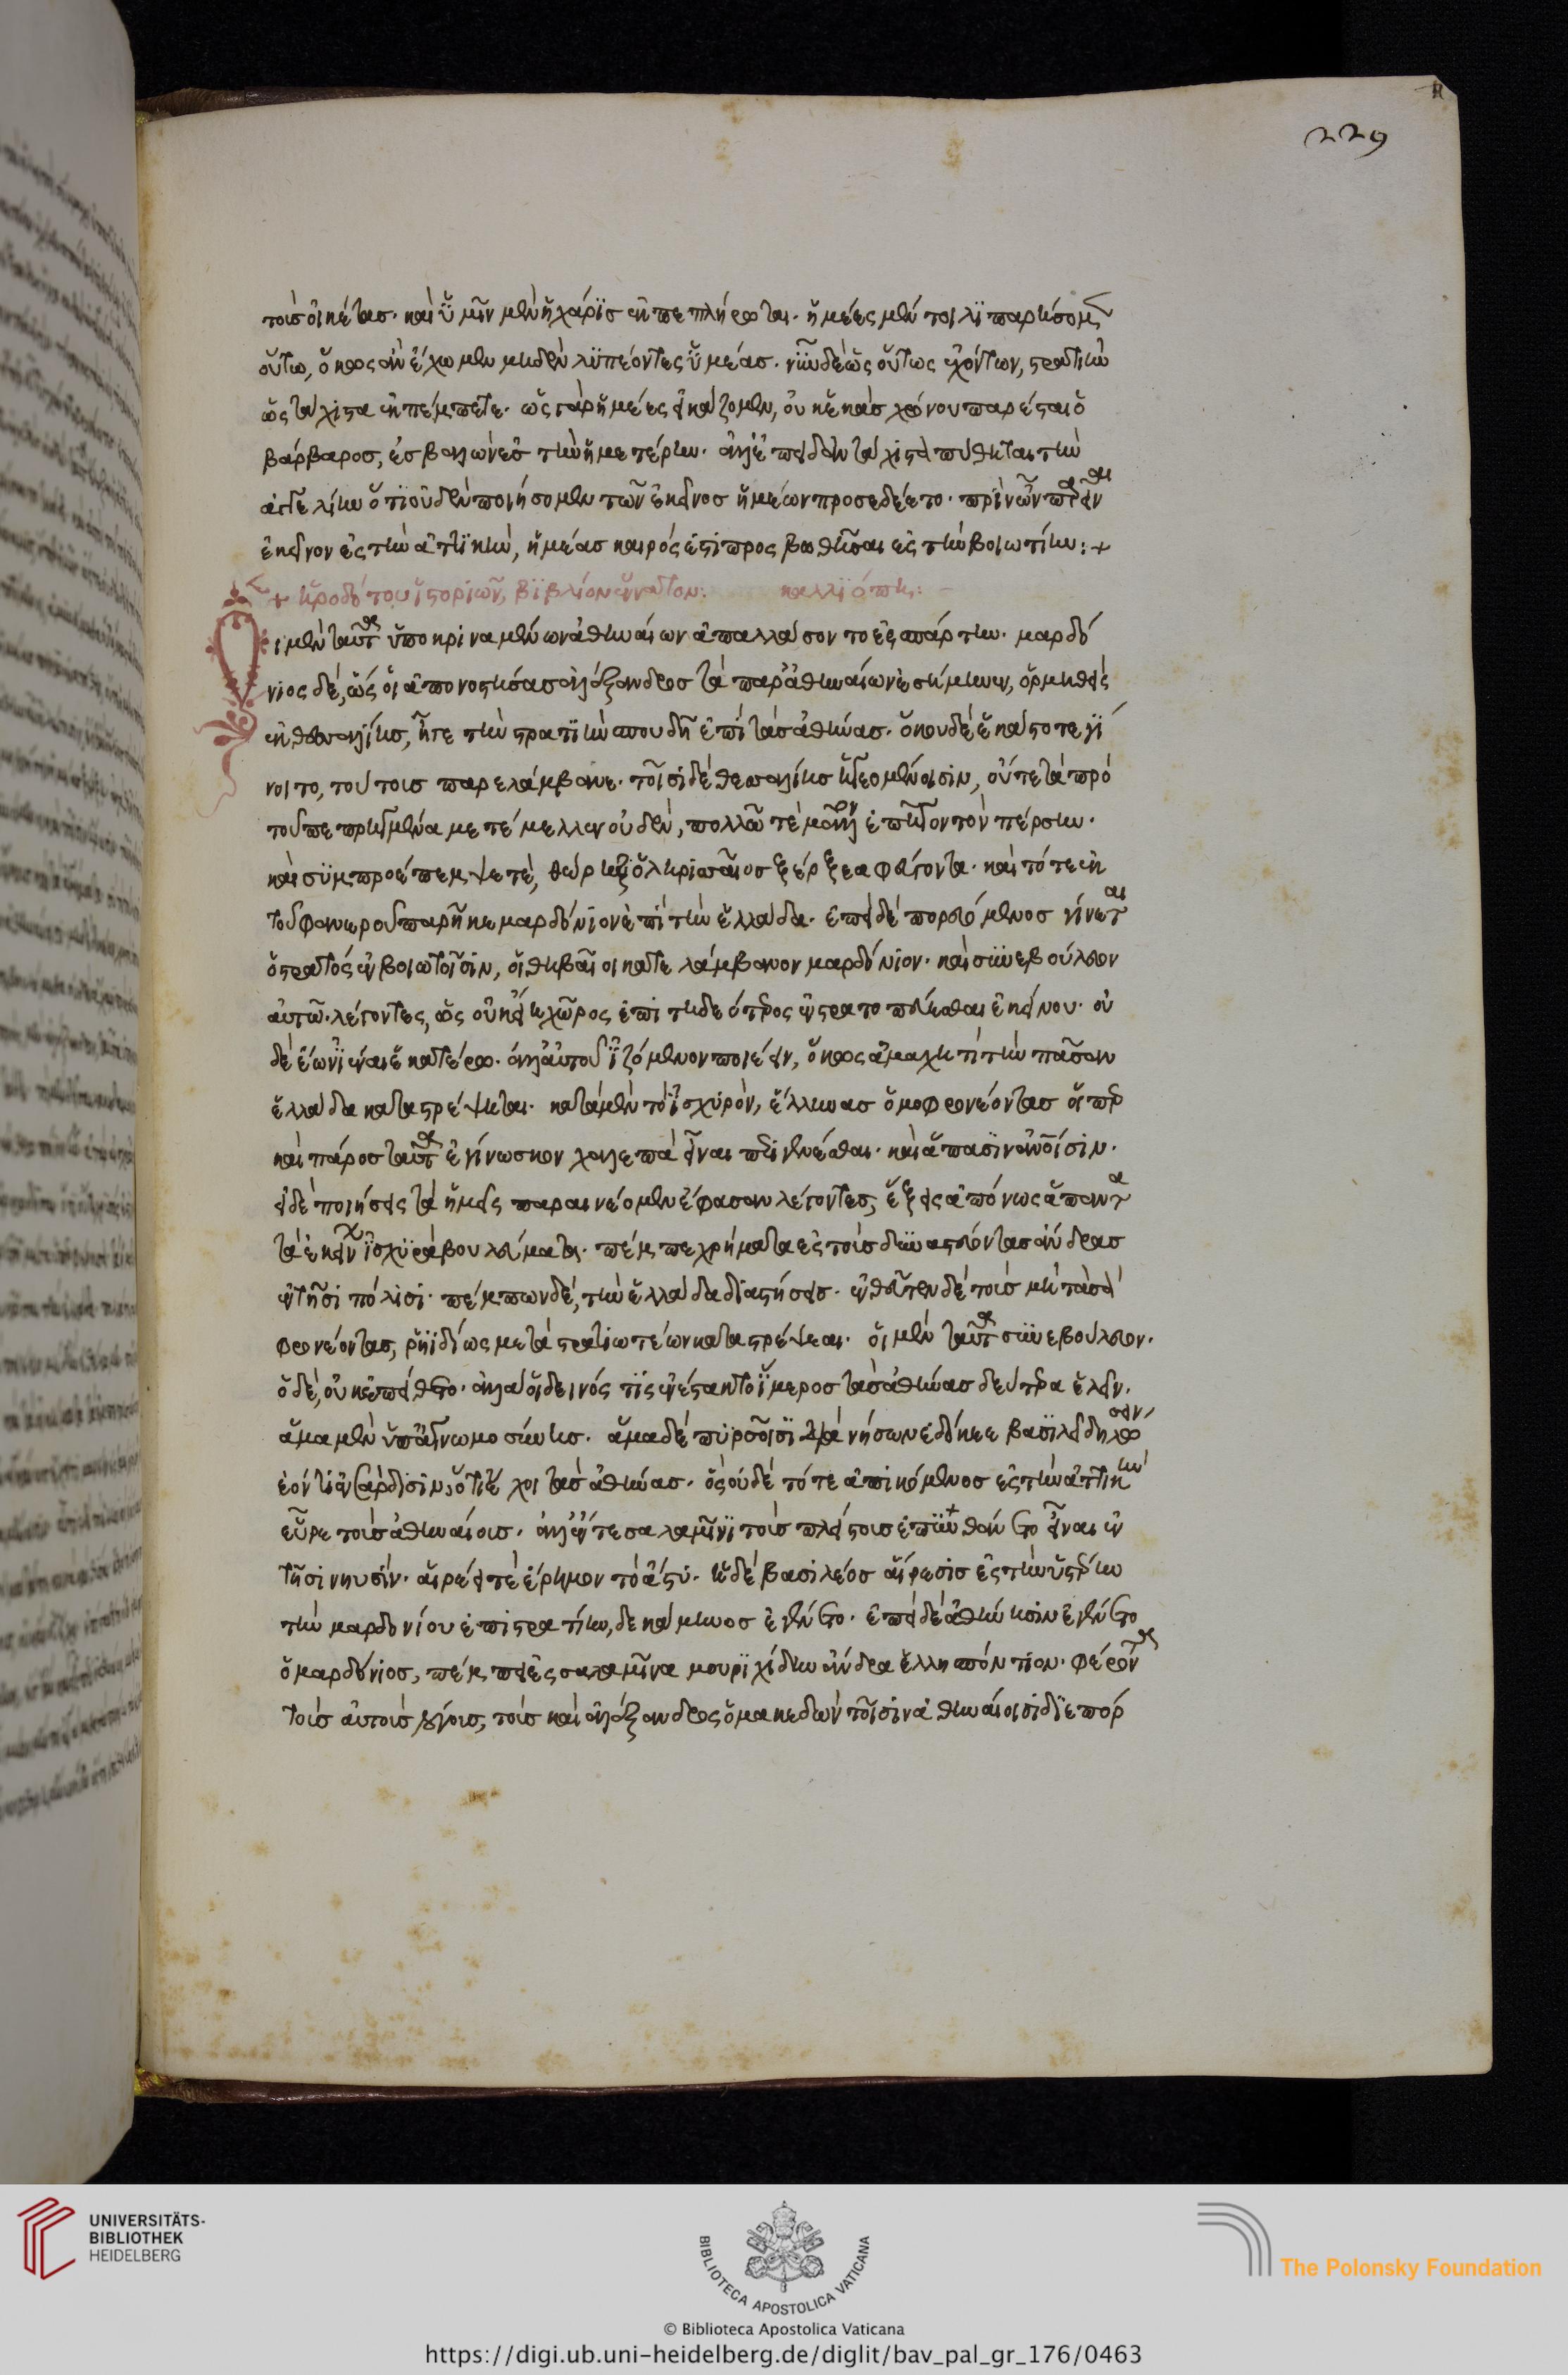 229
τοὺς οἰκέτας· καὶ ὑμῖν μὲν ἡ χάρις ἐκπεπλήρωται· ἡμέες μέν τοι λιπαρήσομεν
οὕτω, ὅκως ἂν ἔχωμεν μηδὲν λυπέοντες ὑμέας· νῦν δὲ ὡς οὕτως ἐχόντων, στρατιὴν
ὡς τάχιστα ἐκπέμπετε· ὡς γὰρ ἡμέες εἰκάζομεν, οὐκ ἑκὰς χρόνου παρέσται ὁ
βάρβαρος, ἐσβαλὼν ἐς τὴν ἡμετέρην· ἀλλ' ἐπειδὰν τάχιστα πύθηται τὴν
ἀγγελίην ὅτι οὐδὲν ποιήσομεν τῶν ἐκεῖνος ἡμέων προσεδέετο· πρὶν ὦν παρεῖναι
ἐκεῖνον ἐς τὴν ἀττικὴν, ἡμέας καιρός ἐστι προσβωθῆσαι ἐς τὴν βοιωτίην:+
+ ἡροδότου ἱστοριῶν, βιβλίον ἔννατον: καλλιόπη:
οἱ μὲν ταῦτα ὑποκριναμένων ἀθηναίων ἀπαλλάσοντο ἐς σπάρτην· μαρδό
νιος δέ, ὥς οἱ ἀπονοστήσας ἀλέξανδρος τὰ παρὰ ἀθηναίων ἐσήμηνεν, ὁρμηθεὶς
ἐκ θεσσαλίης, ἦγε τὴν στρατιὴν σπουδῇ ἐπὶ τὰς ἀθήνας· ὅκου δὲ ἑκάστοτε γί
νοιτο, τούτους παρελάμβανε· τοῖσι δὲ θεσσαλίης ἡγεομένοισιν, οὔτε τὰ πρὸ
τοῦ πεπρηγμένα μετέμελλεν οὐδέν, πολλῶ τὲ μᾶλλον ἐπῆγον τὸν πέρσην·
καὶ συμπροέπεμψέ τε, θώρηξ ὁ ληρισαῖος ξέρξεα φεύγοντα· καὶ τότε ἐκ
τοῦ φανεροῦ παρῆκε μαρδόνιον ἐπὶ τὴν ἑλλάδα· ἐπεὶ δὲ πορευόμενος γίνεται
ὁ στρατὸς ἐν βοιωτοῖσιν, οἱ θηβαῖοι κατελάμβανον μαρδόνιον· καὶ συνεβούλευον
αὐτῶ· λέγοντες, ὡς οὐκ εἴη χῶρος ἐπιτηδεότερος ἐνστρατοπεδεύεσθαι ἐκείνου· οὐ
δὲ ἔων ἰέναι ἑκατέρω· ἀλλ' αὐτοῦ ἱζόμενον ποιέειν, ὅκως ἀμαχητὶ τὴν πᾶσαν
ἑλλάδα καταστρέψηται· κατὰ μὲν τὸ ἰσχυρὸν, ἕλληνας ὁμοφρονέοντας οἵπερ
καὶ πάρος ταῦτα ἐγίνωσκον χαλεπὰ εἶναι περιγενέσθαι· καὶ ἅπασιν ἀνθρώποισιν·
εἰ δὲ ποιήσεις τὰ ἡμεῖς παραινέομεν ἔφασαν λέγοντες, ἕξεις ἀπόνως ἅπαντα
τὰ ἐκείνων ἰσχυρὰ βουλεύματα· πέμπε χρήματα ἐς τοὺς δυναστεύοντας ἄνδρας
ἐν τῆσι πόλισι· πέμπων δὲ, τὴν ἑλλάδα διαστήσεις· ἐνθεῦτεν δὲ τοὺς μὴ τὰ σὰ
φρονέοντας, ῥηϊδίως μετὰ στασιωτέων καταστρέψεαι· οἱ μὲν ταῦτα συνεβούλευον·
ὁ δὲ, οὐκ ἐπείθετο· ἀλλά οἱ δεινός τις ἐνέστακτο ἵμερος τὰς ἀθήνας δεύτερα ἑλεῖν·
ἅμα μὲν ὑπ' ἀγνωμοσύνης· ἅμα δὲ πυρσοῖσι διὰ νήσων ἐδόκεε βασιλέϊ δηλώσειν
ἐόντι ἐν σάρδισιν, ὅτι ἔχοι τὰς ἀθήνας· ὃς οὐδὲ τότε ἀπικόμενος ἐς τὴν ἀττικὴν
εὗρε τοὺς ἀθηναίους· ἀλλ' ἔν τε σαλαμῖνι τοὺς πλείστους ἐπυνθάνετο εἶναι ἐν
τῆσι νηυσίν· αἱρέει τὲ ἔρημον τὸ ἄστυ· ἡ δὲ βασιλέος αἵρεσις ἐς τὴν ὑστέρην
τὴν μαρδονίου ἐπιστρατίην, δεκάμηνος ἐγένετο· ἐπεὶ δὲ ἐν ἀθήνησιν ἐγένετο
ὁ μαρδόνιος, πέμπει ἐς σαλαμῖνα μουριχίδην ἄνδρα ἑλλησπόντιον· φέροντα
τοὺς αὐτοὺς λόγους, τοὺς καὶ ἀλέξανδρος ὁ μακεδὼν τοῖσιν ἀθηναίοισι διεπόρ
UNIVERSITÄTS-
BIBLIOTHEK
HEIDELBERG
BIBLIOTECA APOSTOLICA VATICANA
The Polonsky Foundation
© Biblioteca Apostolica Vaticana
https://digi.ub.uni-heidelberg.de/diglit/bav_pal_gr_176/0463